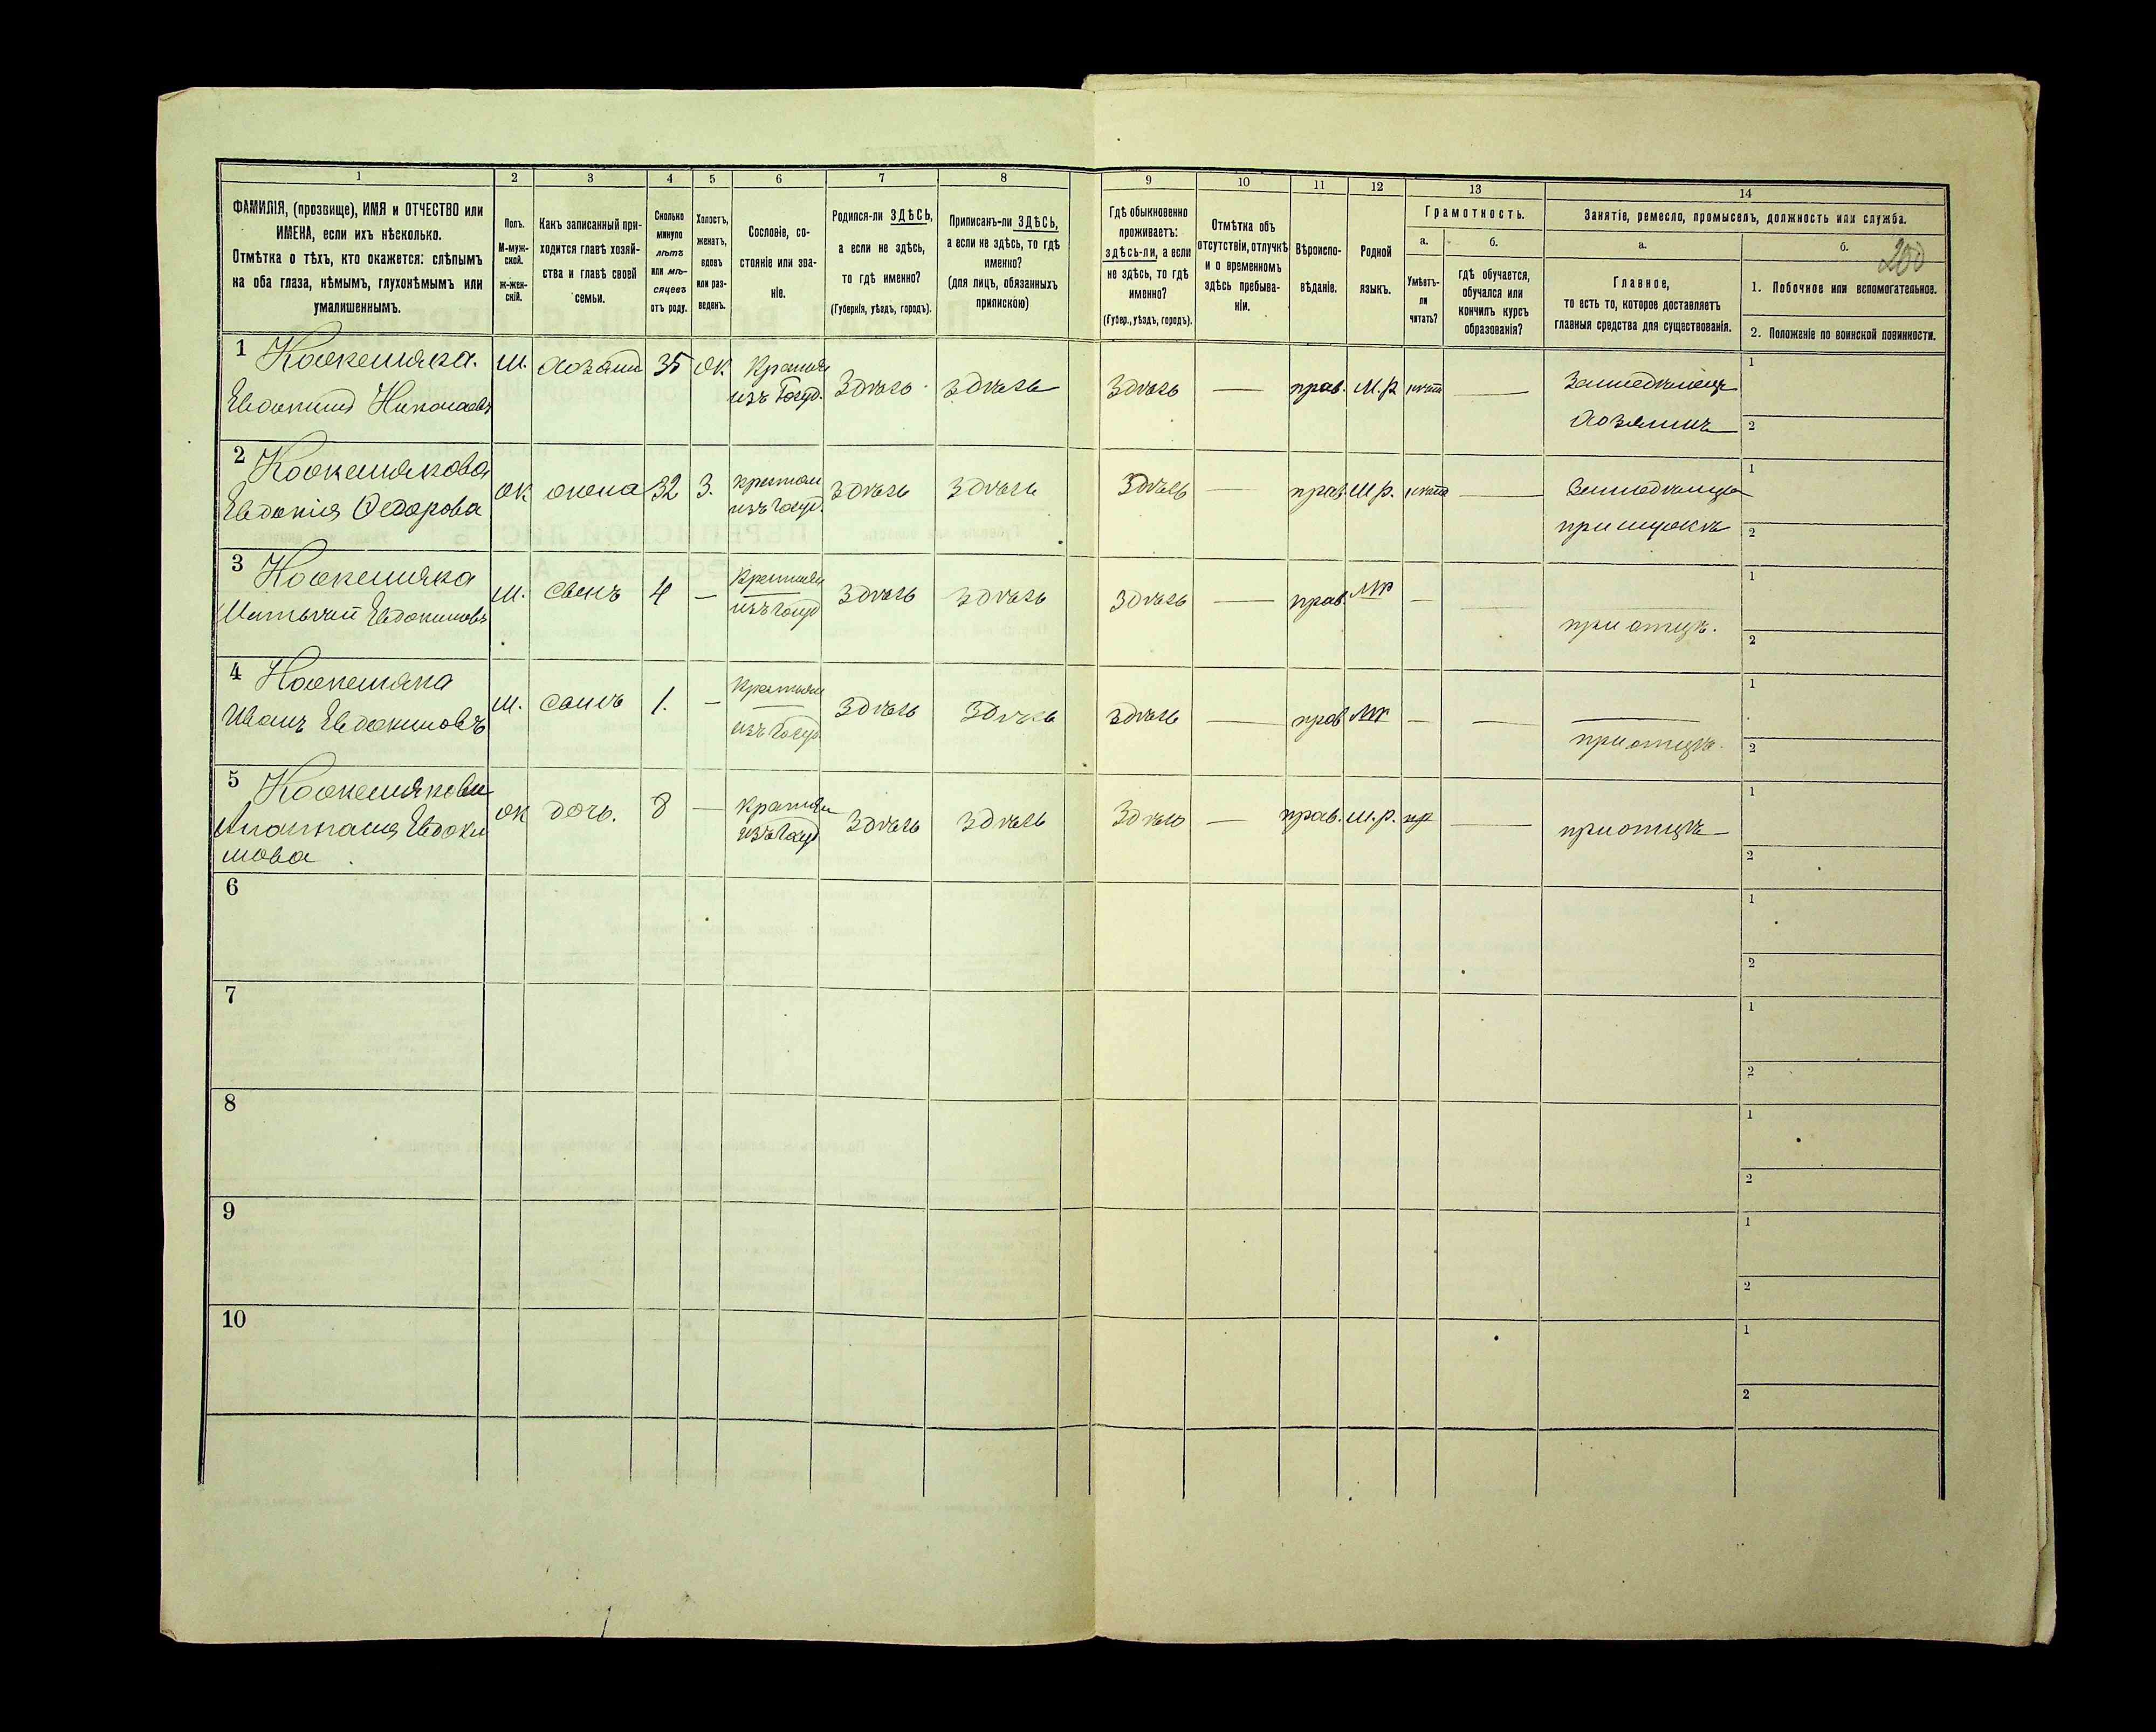 1
2
3
4
5
6
7
8
9
10
11
12
13
14
ФАМИЛІЯ, (прозвище), ИМЯ и ОТЧЕСТВО или
ИМЕНА, если ихъ нѣсколько.
Отмѣтка о тѣхъ, кто окажется: слѣпымъ
на оба глаза, нѣмымъ, глухонѣмымъ или
умалишеннымъ.
Полъ.
М-муж-
ской.
ж-жен-
скій.
Какъ записанный при-
ходится главѣ хозяй-
ства и главѣ своей
семьи.
Сколько
минуло
лѣтъ
или мѣ-
сяцевъ
отъ роду.
Холостъ,
женатъ,
вдовъ
или раз-
веденъ.
Сословіе, со-
стояніе или зва-
ніе.
Родился-ли ЗДѢСЬ,
а если не здѣсь,
то гдѣ именно?
(Губернія, уѣздъ, городъ).
Приписанъ-ли ЗДѢСЬ,
а если не здѣсь, то гдѣ
именно?
(для лицъ, обязанныхъ
припискою)
Гдѣ обыкновенно
проживаетъ:
здѣсь-ли, а если
не здѣсь, то гдѣ
именно?
(Губер., уѣздъ, городъ).
Отмѣтка объ
отсутствіи, отлучкѣ
и о временномъ
здѣсь пребыва-
ніи.
Вѣроиспо-
вѣданіе.
Родной
языкъ.
Грамотность.
а.
Умѣетъ-
ли
читать?
б.
гдѣ обучается,
обучался или
кончилъ курсъ
образованія?
Занятіе, ремесло, промыселъ, должность или служба.
а.
Главное,
то есть то, которое доставляетъ
главныя средства для существованія.
б.
200
1. Побочное или вспомогательное.
2. Положеніе по воинской повинности.
1
Кожемяка.
Евдокимъ Николаевъ
М. хозяинъ 35 ж.
изъ Госуд.
здѣсь здѣсь здѣсь — прав. М.Р —
Земледѣлецъ
хозяинъ
1
2
2
Кожемякова
Евдокія Федорова
ж жена 32 З.
изъ Госуд.
здѣсь здѣсь здѣсь — прав. М.р. —
при мужѣ
1
2
3
Кожемяка
Евдокимовъ
М. сынъ 4 —
изъ Госуд
здѣсь здѣсь здѣсь — прав. МР — —
при отцѣ.
1
2
4
Кожемяка
Иванъ Евдокимовъ
М. сынъ 1. —
изъ Госуд
здѣсь здѣсь здѣсь — прав МР — —
при отцѣ.
1
2
5
Анастасія Евдоки
мова
ж дочь. 8 —
изъ Госуд
здѣсь здѣсь здѣсь — прав. М.р. —
при отцѣ
1
2
6
1
2
7
1
2
8
1
2
9
1
2
10
1
2